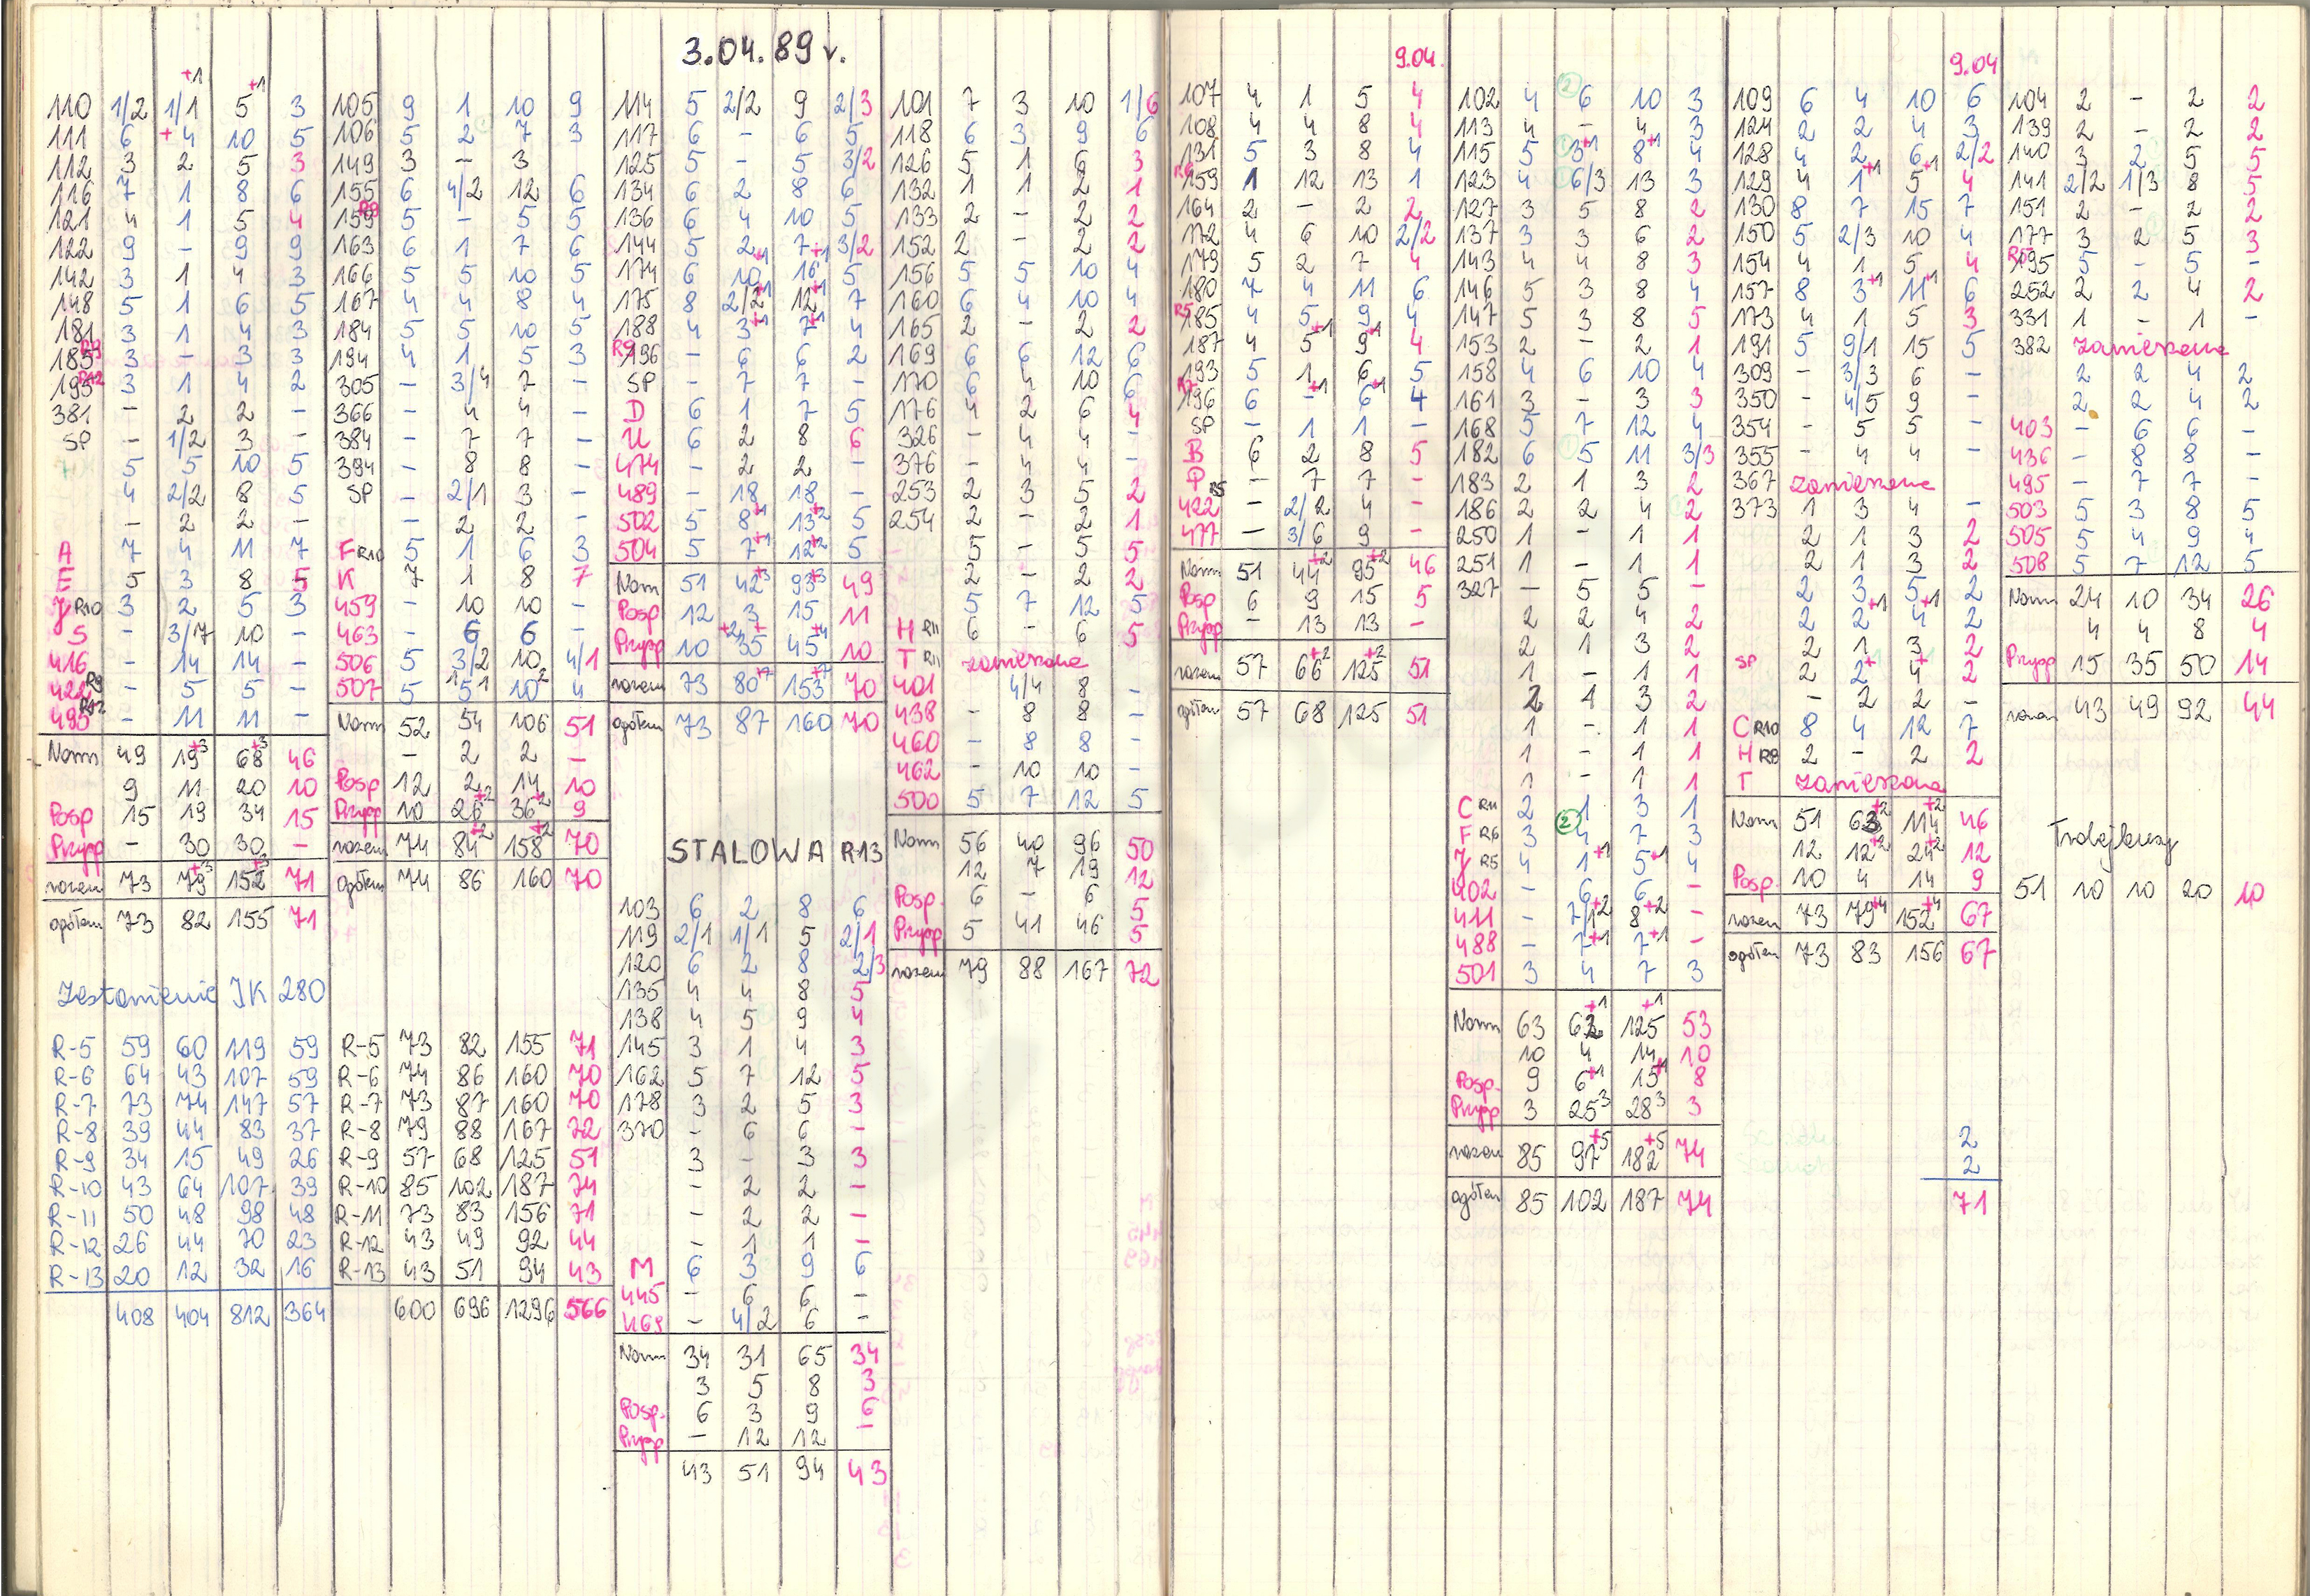 3.04.89 r.
110 1/2 1/1+1 5+1 3
111 6 +4 10 5
112 3 2 5 3
116 7 1 8 6
121 4 1 5 4
122 9 – 9 9
142 3 1 4 3
148 5 1 6 5
181 3 1 4 3
185 R9 3 – 3 3
195 R12 3 1 4 2
381 – 2 2 –
SP – 1/2 3 –
5 5 10 5
4 2/2 8 5
– 2 2 –
A 7 4 11 7
E 5 3 8 5
J R10 3 2 5 3
S – 3/7 10 –
416 – 14 14 –
422 R9 – 5 5 –
495 R12 – 11 11 –
Norm 49 19+3 68+3 46
9 11 20 10
Posp 15 19 34 15
Przysp – 30 30 –
razem 73 79+3 152+3 71
ogółem 73 82 155 71
Zestawienie JK 280
R-5 59 60 119 59
R-6 64 43 107 59
R-7 73 74 147 57
R-8 39 44 83 37
R-9 34 15 49 26
R-10 43 64 107 39
R-11 50 48 98 48
R-12 26 44 70 23
R-13 20 12 32 16
408 404 812 364
105 9 1 10 9
106 5 2 7 3
149 3 – 3
155 6 4/2 12 6
159 R9 5 – 5 5
163 6 1 7 6
166 5 5 10 5
167 4 4 8 4
184 5 5 10 5
194 4 1 5 3
305 – 3/4 7 –
366 – 4 4 –
384 – 7 7 –
394 – 8 8 –
SP – 2/1 3 –
– 2 2 –
F R10 5 1 6 3
K 7 1 8 7
459 – 10 10 –
463 – 6 6 –
506 5 3/2 10 4/1
507 5 5 10 4
Norm 52 54 106 51
– 2 2 –
Posp 12 2 14 10
Przysp 10 26+2 36+2 9
razem 74 84+2 158+2 70
ogółem 74 86 160 70
R-5 73 82 155 71
R-6 74 86 160 70
R-7 73 87 160 70
R-8 79 88 167 72
R-9 57 68 125 51
R-10 85 102 187 74
R-11 73 83 156 71
R-12 43 49 92 44
R-13 43 51 94 43
600 696 1296 566
114 5 2/2 9 2/3
117 6 – 6 5
125 5 – 5 3/2
134 6 2 8 6
136 6 4 10 5
144 5 2 7 3/2
174 6 10+1 16+1 5
175 8 2/2+1 12+1 7
188 4 3+1 7+1 4
R9 196 – 6 6 2
SP – 7 7 –
D 6 1 7 5
U 6 2 8 6
474 – 2 2 –
489 – 18 18 –
502 5 8+1 13+2 5
504 5 7+1 12+2 5
Norm 51 42+3 93+3 49
Posp 12 3 15 11
Przysp 10 35 45+4 10
razem 73 80+7 153+7 70
ogółem 73 87 160 70
STALOWA R13
103 6 2 8 6
119 2/1 1/1 5 2/1
120 6 2 8 2/3
135 4 4 8 5
138 4 5 9 4
145 3 1 4 3
162 5 7 12 5
178 3 2 5 3
370 – 6 6 –
3 – 3 3
– 2 2 –
– 2 2 –
– 1 1 –
M 6 3 9 6
445 – 6 6 –
469 – 4/2 6 –
Norm 34 31 65 34
3 5 8 3
Posp. 6 3 9 6
Przysp – 12 12 –
43 51 94 43
101 7 3 10 1/6
118 6 3 9 6
126 5 1 6 3
132 1 1 2 1
133 2 – 2 2
152 2 – 2 2
156 5 5 10 4
160 6 4 10 4
165 2 – 2 2
169 6 6 12 6
170 6 4 10 6
176 4 2 6 4
326 – 4 4 –
376 – 4 4 –
253 2 3 5 2
254 2 – 2 1
5 – 5 5
2 – 2 2
5 7 12 5
H R11 6 – 6 5
T R11 zawieszona
401 4/4 8 –
438 – 8 8 –
460 – 8 8 –
462 – 10 10 –
500 5 7 12 5
Norm 56 40 96 50
12 7 19 12
Posp. 6 – 6 5
Przysp 5 41 46 5
razem 79 88 167 72
9.04.
107 4 1 5 4
108 4 4 8 4
131 5 3 8 4
R6 159 1 12 13 1
164 2 – 2 2
172 4 6 10 2/2
179 5 2 7 4
180 7 4 11 6
R5 185 4 5 9 4
187 4 5+1 9+1 4
193 5 1 6 5
R7 196 6 –+1 6+1 4
SP – 1 1 –
B 6 2 8 5
P – 7 7 –
422 R5 – 2/2 4 –
477 – 3/6 9 –
Norm 51 44+2 95+2 46
Posp 6 9 15 5
Przysp – 13 13 –
razem 57 66+2 125+2 51
ogółem 57 68 125 51
102 4 6 10 3
113 4 – 4 3
115 5 3+1 8+1 4
123 4 6/3 13 3
127 3 5 8 2
137 3 3 6 2
143 4 4 8 3
146 5 3 8 4
147 5 3 8 5
153 2 – 2 1
158 4 6 10 4
161 3 – 3 3
168 5 7 12 4
182 6 5 11 3/3
183 2 1 3 2
186 2 2 4 2
250 1 – 1 1
251 1 – 1 1
327 – 5 5 –
2 2 4 2
2 1 3 2
1 – 1 1
2 1 3 2
1 – 1 1
1 – 1 1
1 – 1 1
C R11 2 1 3 1
F R6 3 4 7 3
J R5 4 1+1 5+1 4
402 – 6 6 –
411 – 7/1+2 8+2 –
488 – 7+1 7+1 –
501 3 4 7 3
Norm 63 62+1 125+1 53
10 4 14 10
Posp. 9 6+1 15+1 8
Przysp 3 25 3 28 3 3
razem 85 97+5 182+5 74
ogółem 85 102 187 74
9.04
109 6 4 10 6
124 2 2 4 3
128 4 2 6 2/2
129 4 1+1 5+1 4
130 8 7 15 7
150 5 2/3 10 4
154 4 1 5 4
157 8 3+1 11+1 6
173 4 1 5 3
191 5 9/1 15 5
309 – 3/3 6 –
350 – 4/5 9 –
354 – 5 5 –
355 – 4 4 –
367 zawieszona
373 1 3 4 –
2 1 3 2
2 1 3 2
2 3 5 2
2 2+1 4+1 2
2 1 3 2
SP 2 2+ 4+ 2
– 2 2 –
C R10 8 4 12 7
H R8 2 – 2 2
T zawieszona
Norm 51 63+2 114+2 46
12 12+2 24+2 12
Posp. 10 4 14 9
razem 73 79+4 152+4 67
ogółem 73 83 156 67
2
2
71
104 2 – 2 2
139 2 – 2 2
140 3 2 5 5
141 2/2 1/3 8 5
151 2 – 2 2
177 3 2 5 3
R5 195 5 – 5 –
252 2 2 4 2
331 1 – 1 –
382 zawieszona
2 2 4 2
2 2 4 2
403 – 6 6 –
436 – 8 8 –
495 – 7 7 –
503 5 3 8 5
505 5 4 9 4
508 5 7 12 5
Norm 24 10 34 26
4 4 8 4
Przysp 15 35 50 14
razem 43 49 92 44
Trolejbusy
51 10 10 20 10